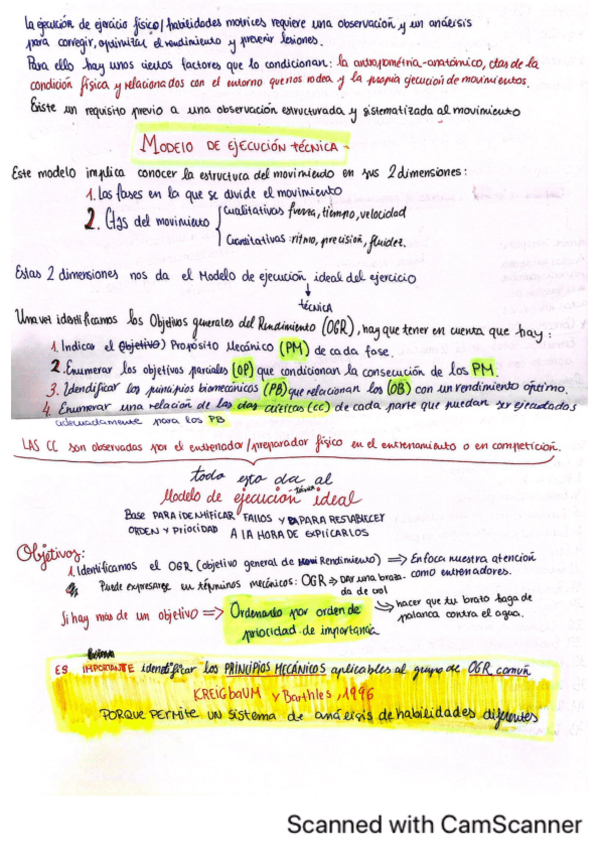 La ejecución de ejercicio físico/habilidades motrices requiere una observación y un análisis
para corregir, optimizar el rendimiento y prevenir lesiones.
Para ello hay unos ciertos factores que lo condicionan: la antropometría-anatómico, ctas de la
condición física y relacionados con el entorno que nos rodea y la propia ejecución de movimientos.
Existe un requisito previo a una observación estructurada y sistematizada al movimiento
MODELO DE EJECUCIÓN TÉCNICA
Este modelo implica conocer la estructura del movimiento en sus 2 dimensiones:
1. Las fases en la que se divide el movimiento
2. Ctas del movimiento
Cualitativas fuerza, tiempo, velocidad
Cuantitativas: ritmo, precisión, fluidez.
Estas 2 dimensiones nos da el Modelo de ejecución ideal del ejercicio
↓
técnica
Una vez identificamos los Objetivos generales del Rendimiento (OGR), hay que tener en cuenta que hay:
1. Indicar el (Objetivo) Propósito Mecánico (PM) de cada fase.
2. Enumerar los objetivos parciales (OP) que condicionan la consecución de los PM.
3. Identificar los principios biomecánicos (PB) que relacionan los (OB) con un rendimiento óptimo.
4. Enumerar una relación de las ctas críticas (CC) de cada parte que puedan ser ejecutadas
adecuadamente para los PB
LAS CC son observadas por el entrenador/preparador físico en el entrenamiento o en competición.
todo esto da al
Modelo de ejecución técnica ideal
BASE PARA IDENTIFICAR FALLOS Y PARA RESTABLECER
ORDEN y PRIORIDAD A LA HORA DE EXPLICARLOS
Objetivos:
1. Identificamos el OGR (objetivo general de Rendimiento) ⇒ Enfoca nuestra atención
como entrenadores.
Puede expresarse en términos mecánicos: OGR ⇒ Dar una braza-
da de crol
↳ hacer que tu brazo haga de
palanca contra el agua.
Si hay más de un objetivo ⇒ Ordenarlo por orden de
prioridad de importancia
ES IMPORTANTE identificar los PRINCIPIOS MECÁNICOS aplicables al grupo de OGR común
KREIGBAUM y Barthles, 1996
PORQUE PERMITE UN SISTEMA de análisis de habilidades diferentes
Scanned with CamScanner